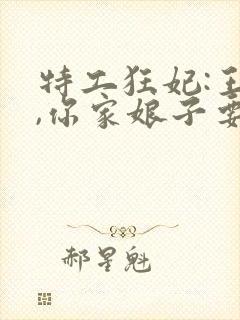 特工狂妃:
,你家娘子
郝星魁